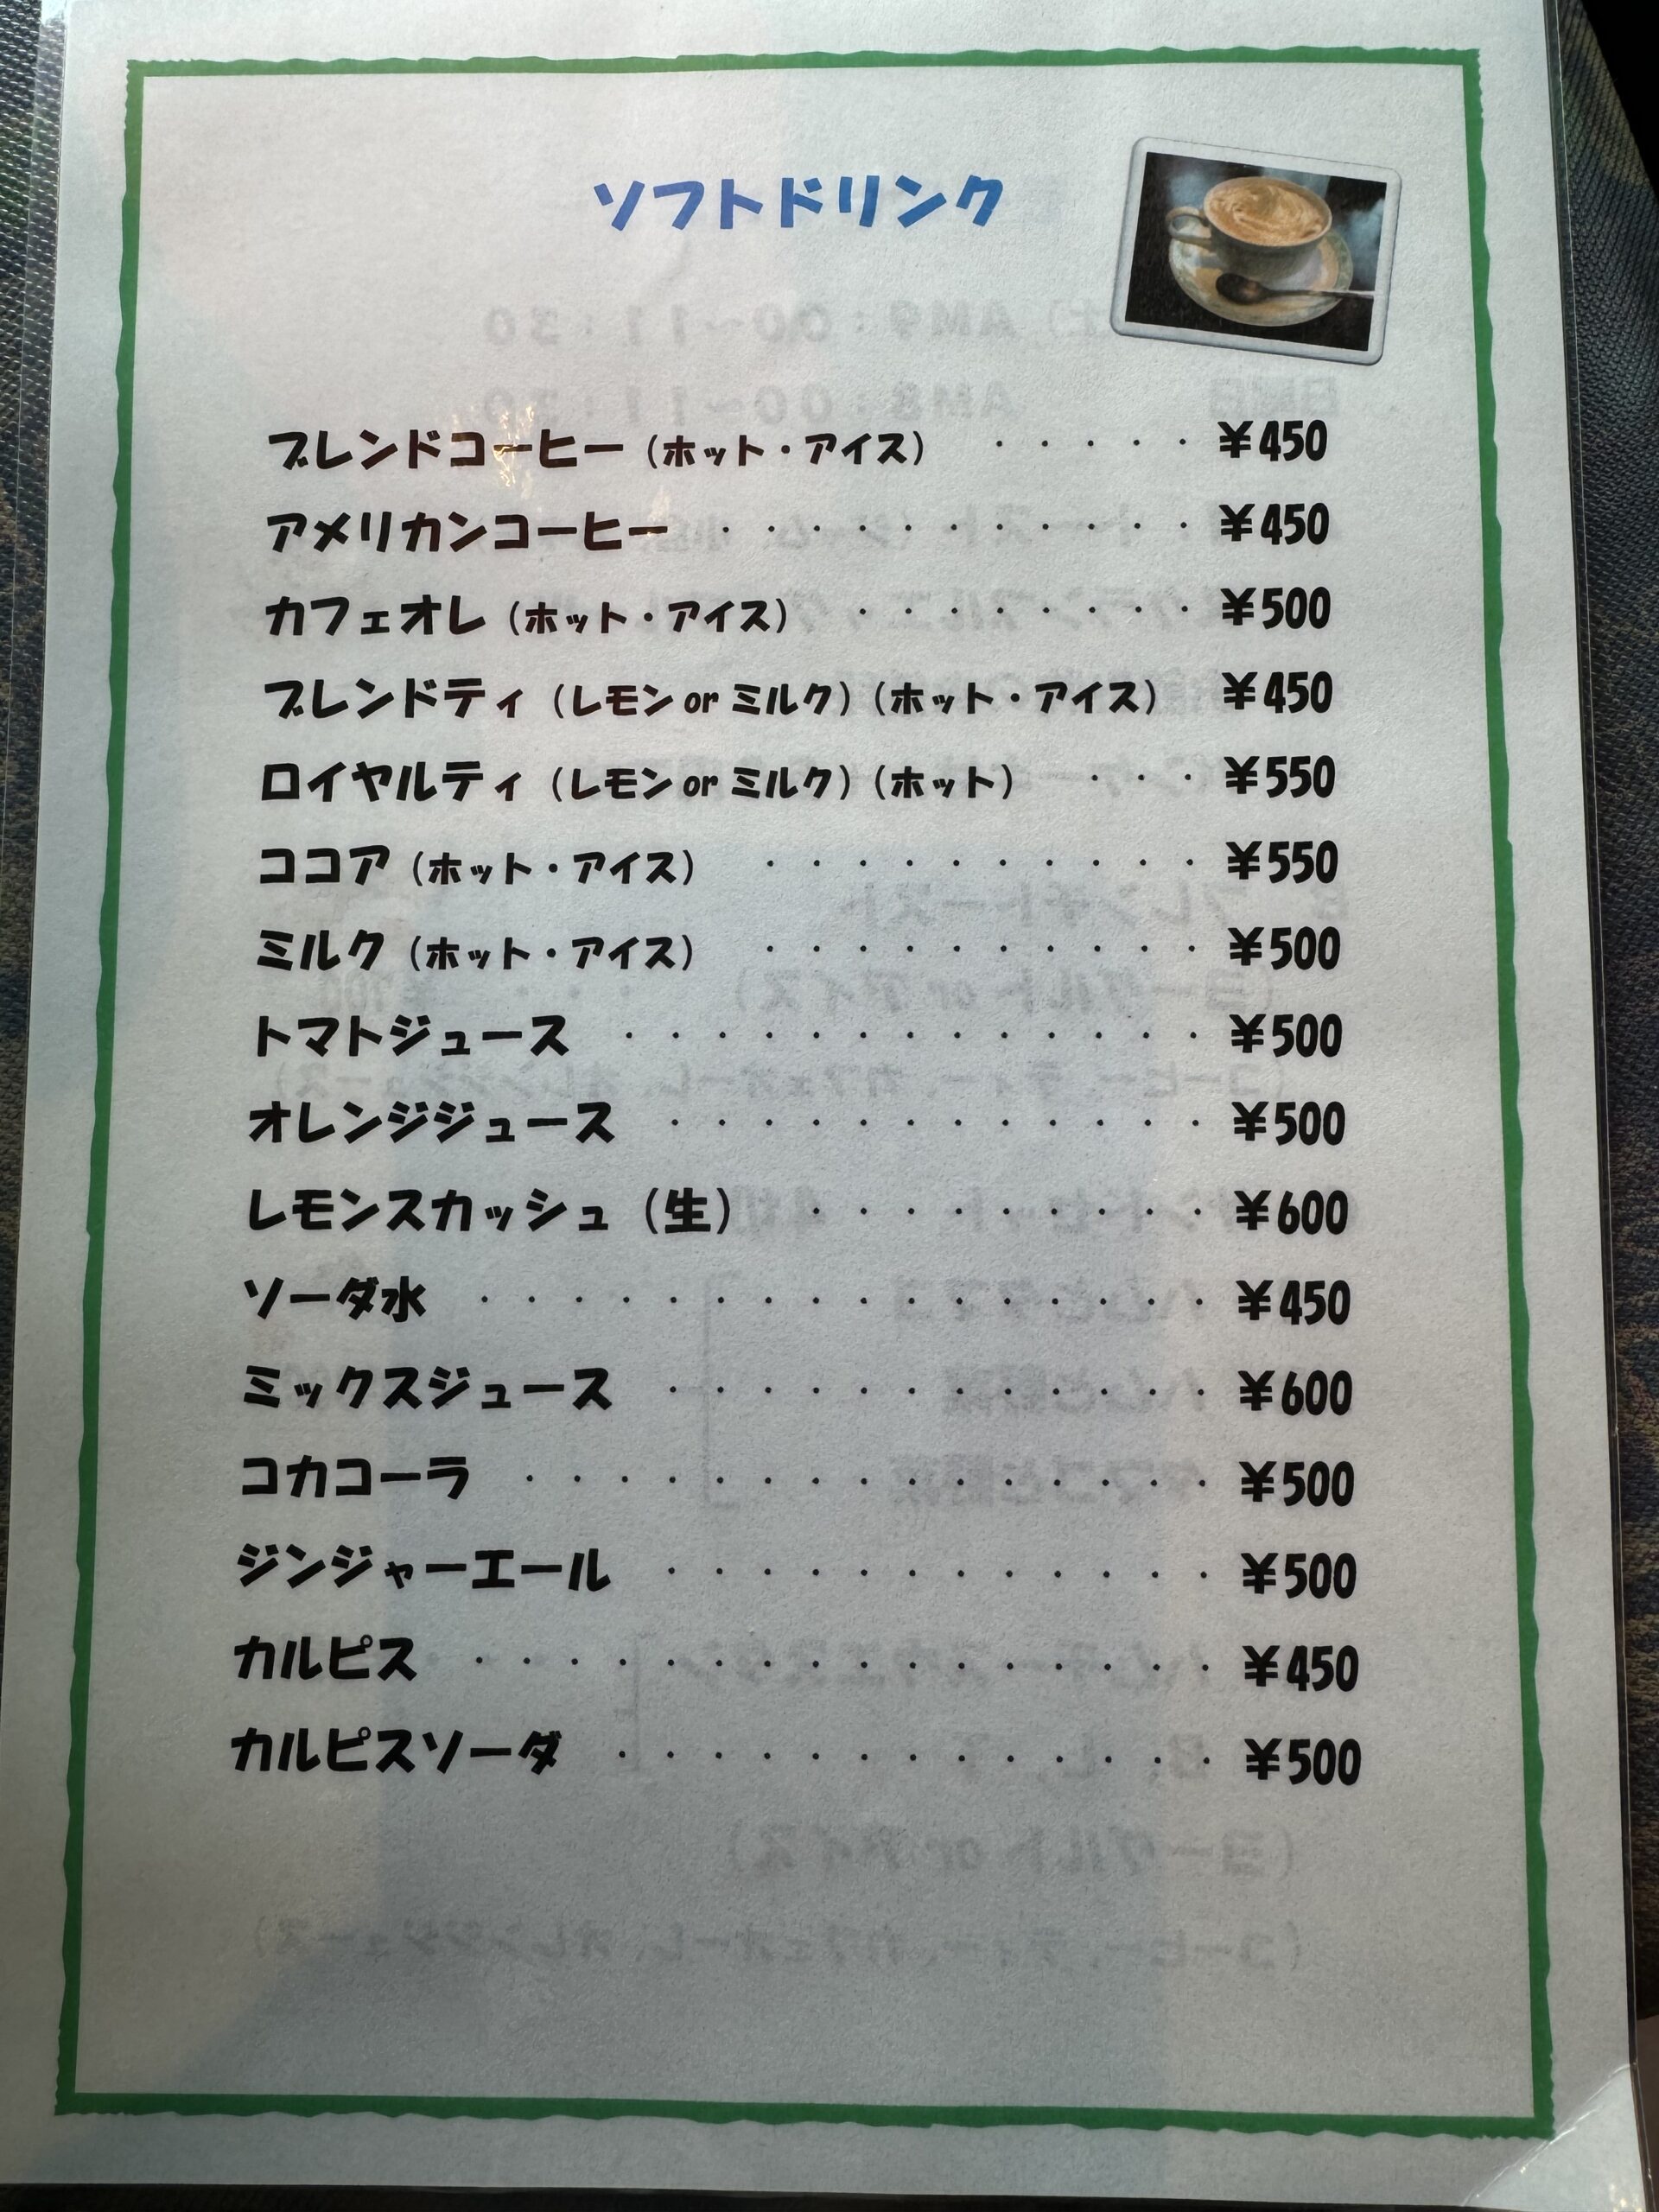 ソフトドリンク
ブレンドコーヒー（ホット・アイス） ・・・・・¥450
アメリカンコーヒー ・・・・・・・・・・・¥450
カフェオレ（ホット・アイス） ・・・・・・・・¥500
ブレンドティ（レモン or ミルク）（ホット・アイス） ¥450
ロイヤルティ（レモン or ミルク）（ホット） ・・・¥550
ココア（ホット・アイス） ・・・・・・・・・・¥550
ミルク（ホット・アイス） ・・・・・・・・・・¥500
トマトジュース ・・・・・・・・・・・・・¥500
オレンジジュース ・・・・・・・・・・・・¥500
レモンスカッシュ（生） ・・・・・・・・・¥600
ソーダ水 ・・・・・・・・・・・・・・・・¥450
ミックスジュース ・・・・・・・・・・・・¥600
コカコーラ ・・・・・・・・・・・・・・・¥500
ジンジャーエール ・・・・・・・・・・・・¥500
カルピス ・・・・・・・・・・・・・・・・¥450
カルピスソーダ ・・・・・・・・・・・・・¥500